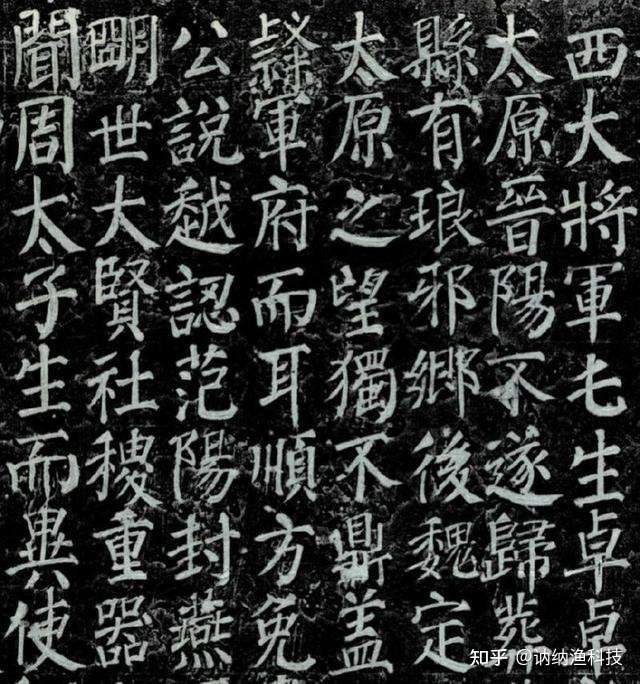 西大將軍七生卓卓
太原晉陽不遂歸葬
縣有琅邪鄉後魏定
太原之望獨不鼎盖
隸軍府而耳順方免
公說越認范陽封燕
朙世大賢社稷重器
聞周太子生而異使
知乎 @讷纳渔科技